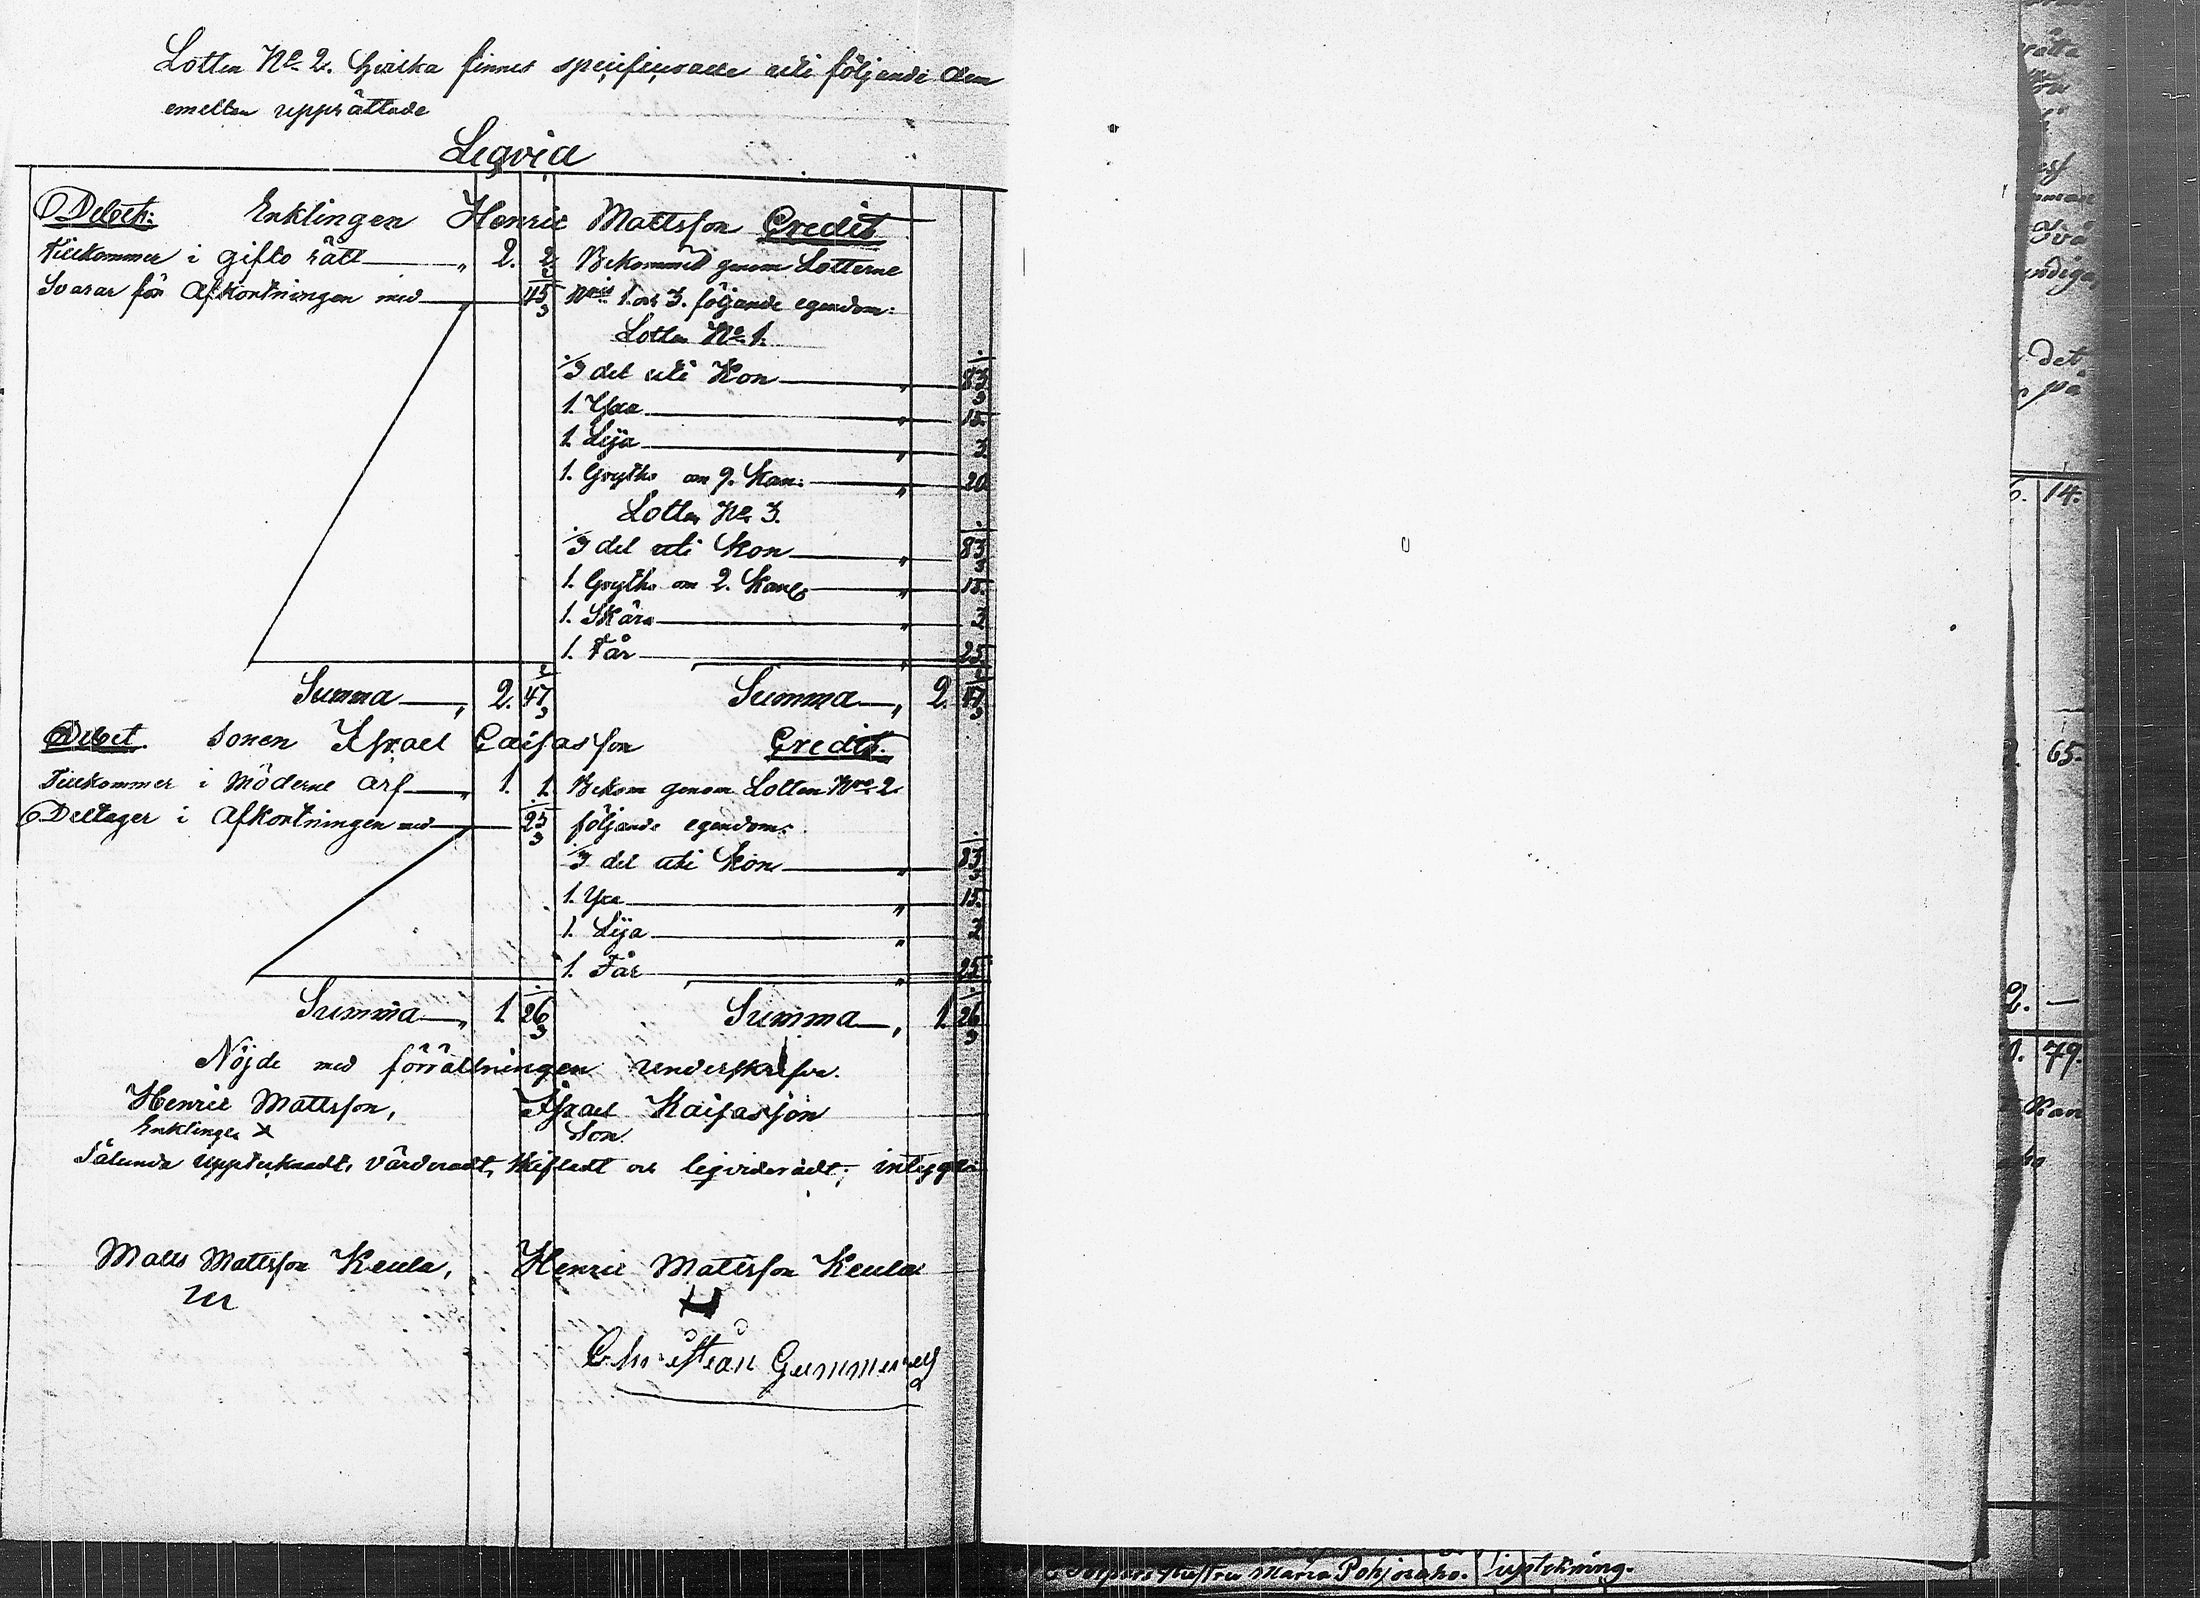 Lotten No 2. hvilka finnes specificerade uti följande dem
emellan upprättade
Liqvid
Debet: Enklingen Henric Mattsson Credit
Tillkommer i gifto rätt „ 2. 2.
Svarar för Afkortningen med „ 45 2/3
Bekommit genom Lotterne
Nris 1. och 3. följande egendom:
Lotten No 1.
1/3 del uti Kon „ 83 1/3
1. Yxa „ 15.
1. Lija „ 3.
1. Gryta om 9. Kan: „ 20.
Lotten No 3.
1/3 del uti Kon „ 83 1/3
1. Gryta om 2. Kan „ 15.
1. Skära „ 2.
1. Får „ 25.
Summa „ 2. 47 2/3 Summa „ 2. 47 2/3
Debet. Sonen Israel Caijasson Credit.
Tillkommer i Möderne Arf „ 1. 1.
Deltager i Afkortningen med 25 1/3
Bekom genom Lotten No 2.
följande egendom:
1/3 del uti Kon „ 83 1/3
1. Yxa „ 15.
1. Lija „ 3
1. Får „ 25.
Summa „ 1. 26 1/3 Summa „ 1. 26 1/3
Nöjde med förrättningen underskrifva.
Henric Mattsson, Israel Kaijasson
Enklinge X Son.
Sålunda upptecknadt, värderadt, skiftadt och liqvideradt; intyga
Matts Mattsson Keula, Henric Mattsson Keula
Christian Gummerus
14.
65.
2. —
79.
det
på
Maria Pohjoraho. Upteckning.